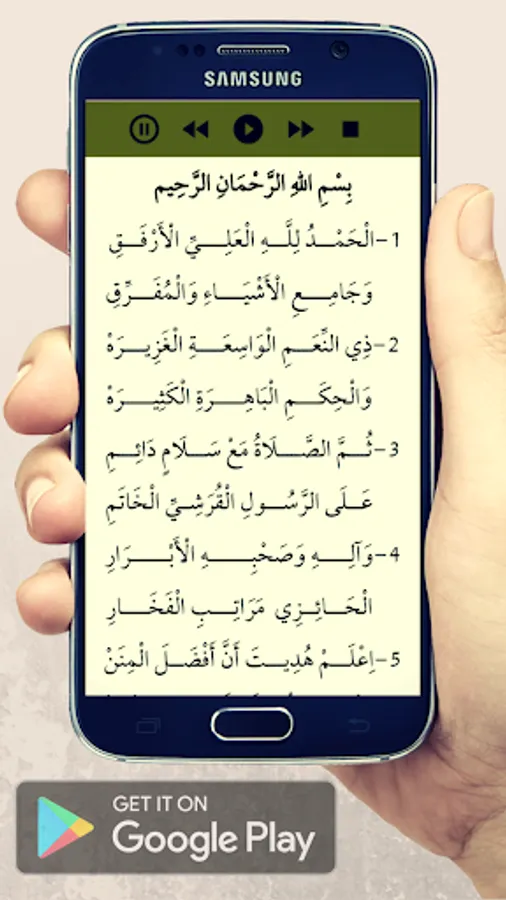 SAMSUNG
بِسْمِ اللهِ الرَّحْمَانِ الرَّحِيم
1-الْحَمْدُ لِلَّهِ الْعَلِيِّ الْأَرْفَقِ
وَجَامِعِ الْأَشْيَاءِ وَالْمُفَرِّقِ
2-ذِي النِّعَمِ الْوَاسِعَةِ الْغَزِيرَهْ
وَالْحِكَمِ الْبَاهِرَةِ الْكَثِيرَهْ
3-ثُمَّ الصَّلَاةُ مَعْ سَلَامٍ دَائِمِ
عَلَى الرَّسُولِ الْقُرَشِيِّ الْخَاتَمِ
4-وَآلِهِ وَصَحْبِهِ الْأَبْرَارِ
الْحَائِزِي مَرَاتِبِ الْفَخَارِ
5-اِعْلَمْ هُدِيتَ أَنَّ أَفْضَلَ الْمِنَنْ
GET IT ON
Google Play